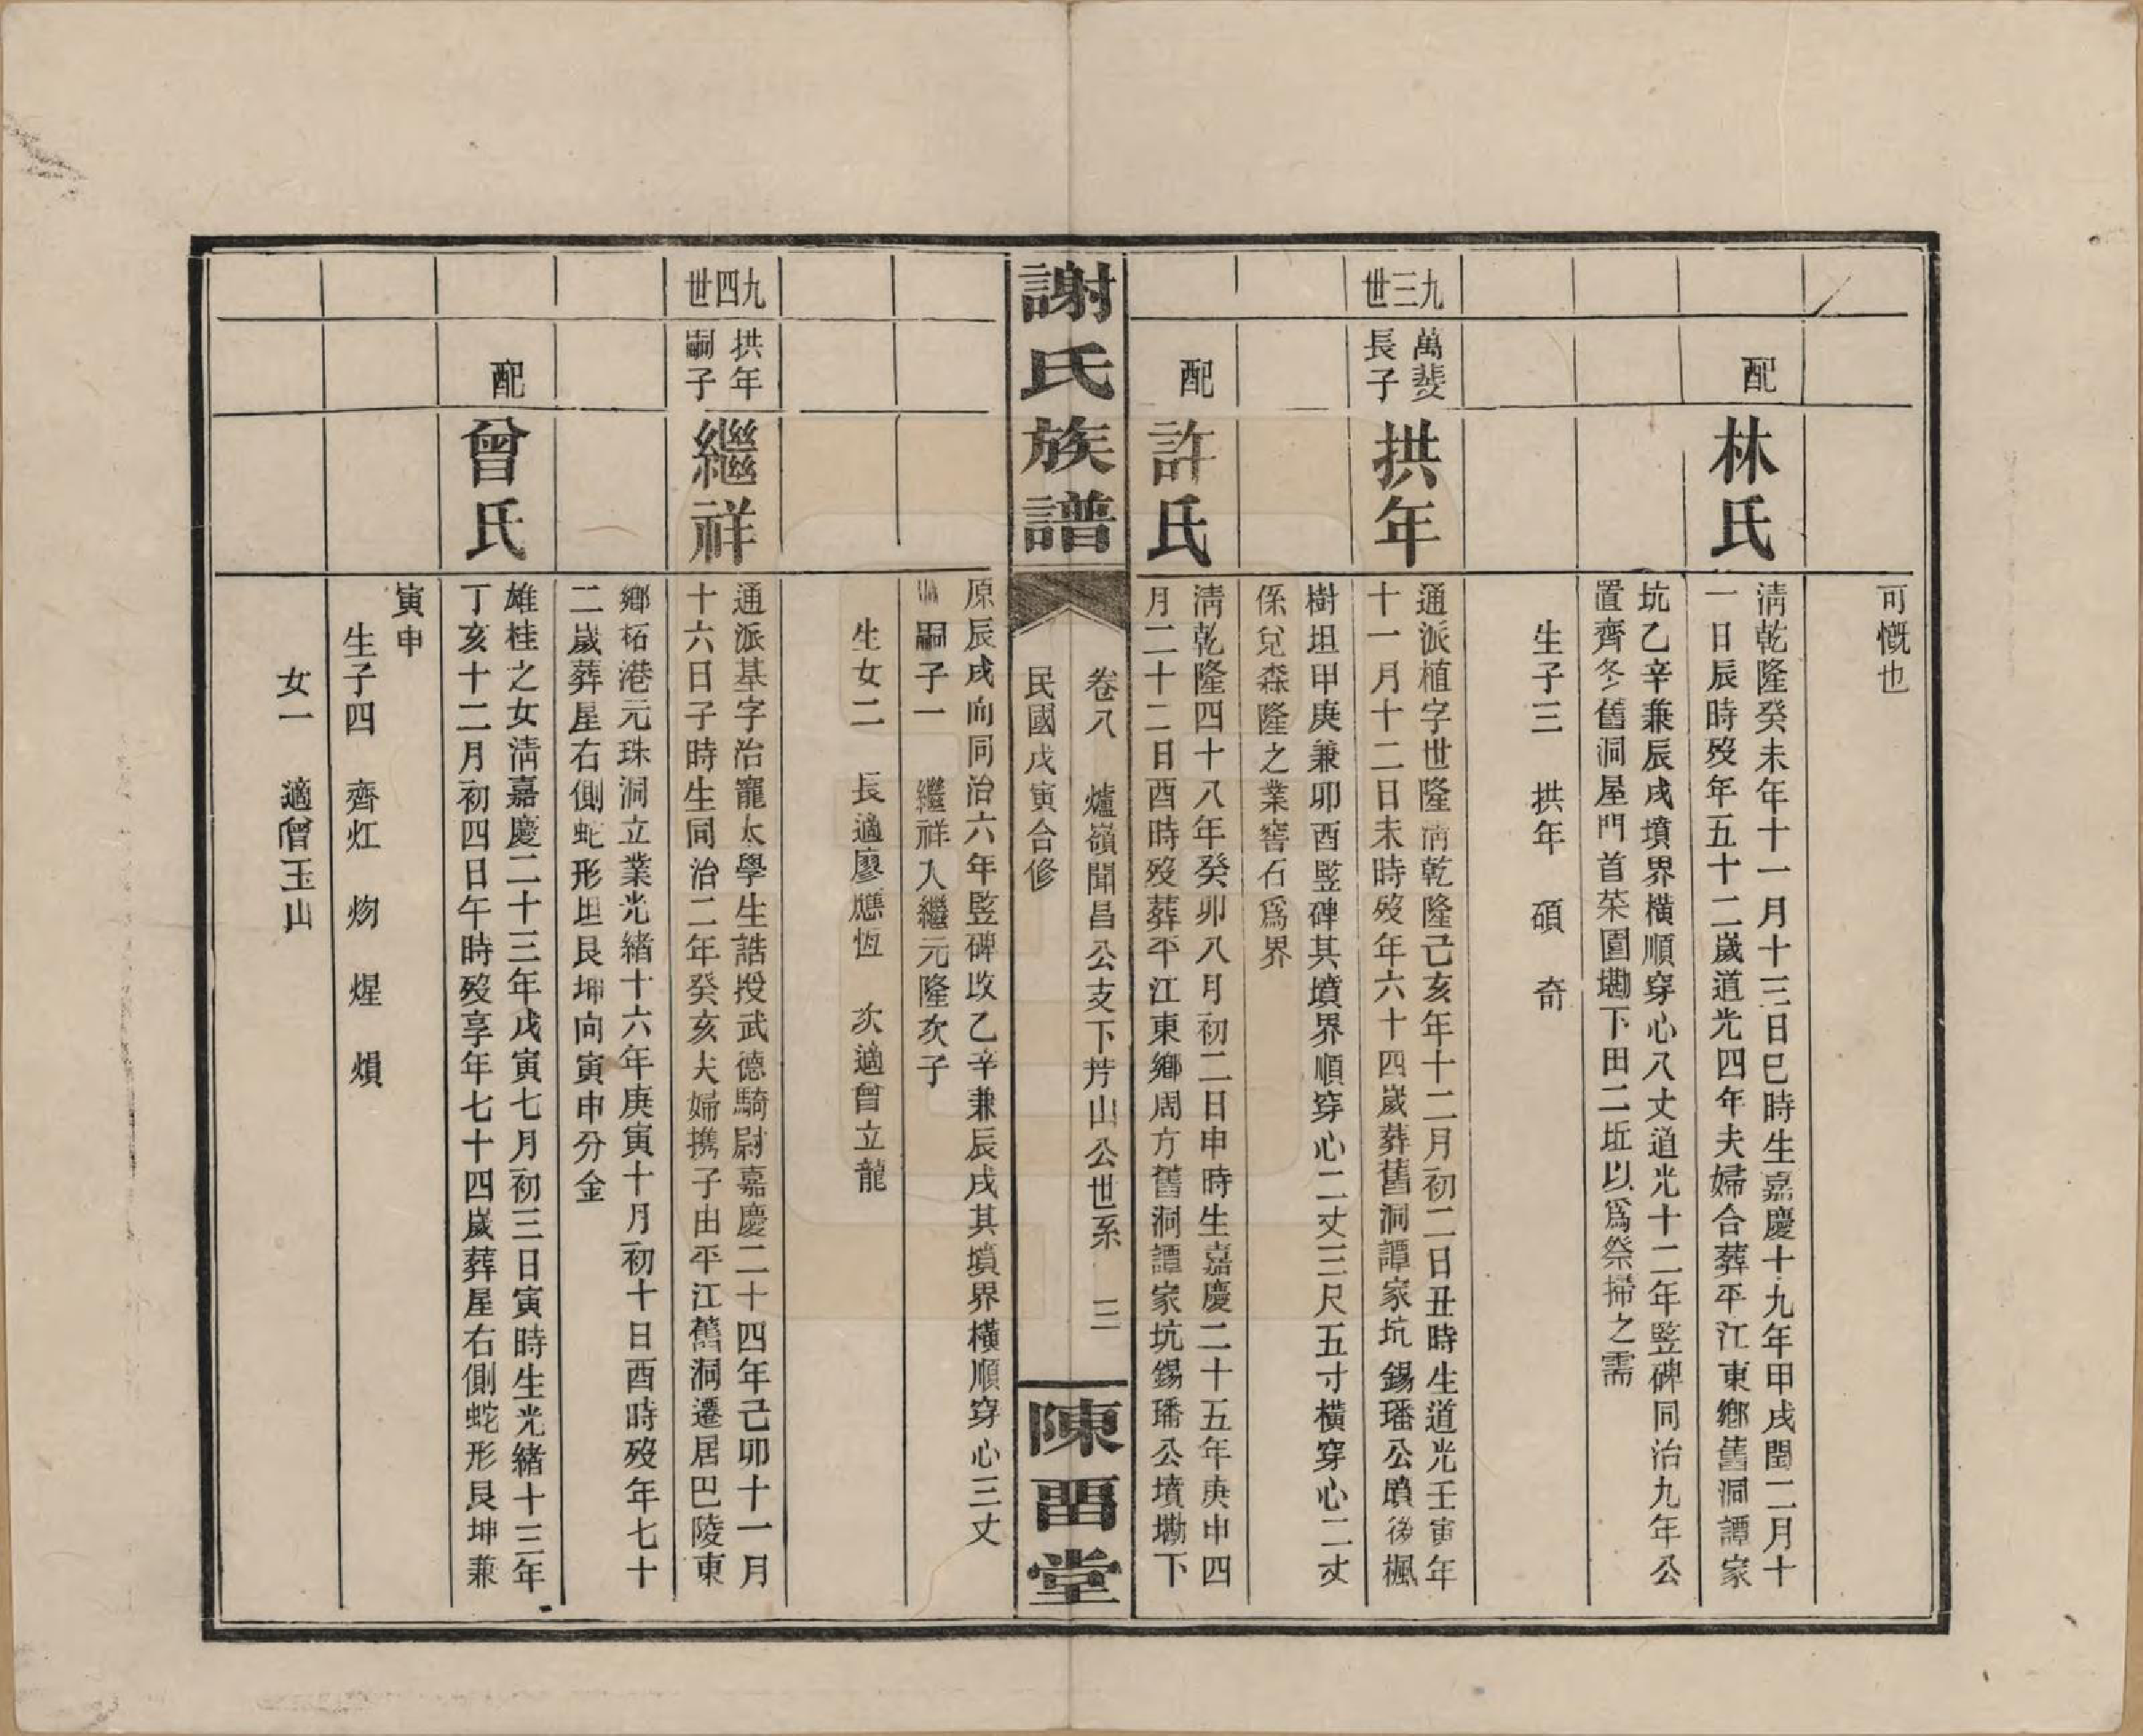 可慨也
配
林氏
清乾隆癸未年十一月十三日巳時生嘉慶十九年甲戌閏二月十
一日辰時歿年五十二歲道光四年夫婦合葬平江東鄉舊洞譚家
坑乙辛兼辰戌墳界橫順穿心八丈道光十二年竪碑同治九年公
置齊冬舊洞屋門首茱園墈下田二坵以爲祭掃之需
生子三 拱年 碩 奇
九三世
萬斐
長子
拱年
通派植字世隆清乾隆己亥年十二月初二日丑時生道光壬寅年
十一月十二日未時歿年六十四歲葬舊洞譚家坑錫璠公墳後楓
樹坦甲庚兼卯酉竪碑其墳界順穿心二丈三尺五寸橫穿心二丈
係兌森隆之業窖石爲界
配
許氏
清乾隆四十八年癸卯八月初二日申時生嘉慶二十五年庚申四
月二十二日酉時歿葬平江東鄉周方舊洞譚家坑錫璠公墳墈下
謝氏族譜
卷八 爐嶺聞昌公支下芳山公世系 三
民國戊寅合修
陳畱堂
原辰戌向同治六年竪碑改乙辛兼辰戌其墳界橫順穿心三丈
嗣子一 繼祥入繼元隆次子
生女二 長適廖應恆 次適曾立龍
九四世
拱年
嗣子
繼祥
通派基字治寵太學生誥授武德騎尉嘉慶二十四年己卯十一月
十六日子時生同治二年癸亥夫婦携子由平江舊洞遷居巴陵東
鄉柘港元珠洞立業光緒十六年庚寅十月初十日酉時歿年七十
二歲葬屋右側蛇形坦艮坤向寅申分金
配
曾氏
雄桂之女清嘉慶二十三年戊寅七月初三日寅時生光緒十三年
丁亥十二月初四日午時歿享年七十四歲葬屋右側蛇形艮坤兼
寅申
生子四 齊灴 㶴 煋 熉
女一 適僧玉山